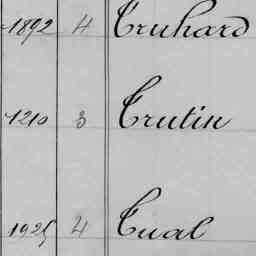 1892 4 Truhard
1210 3 Trutin
1925 4 Tual